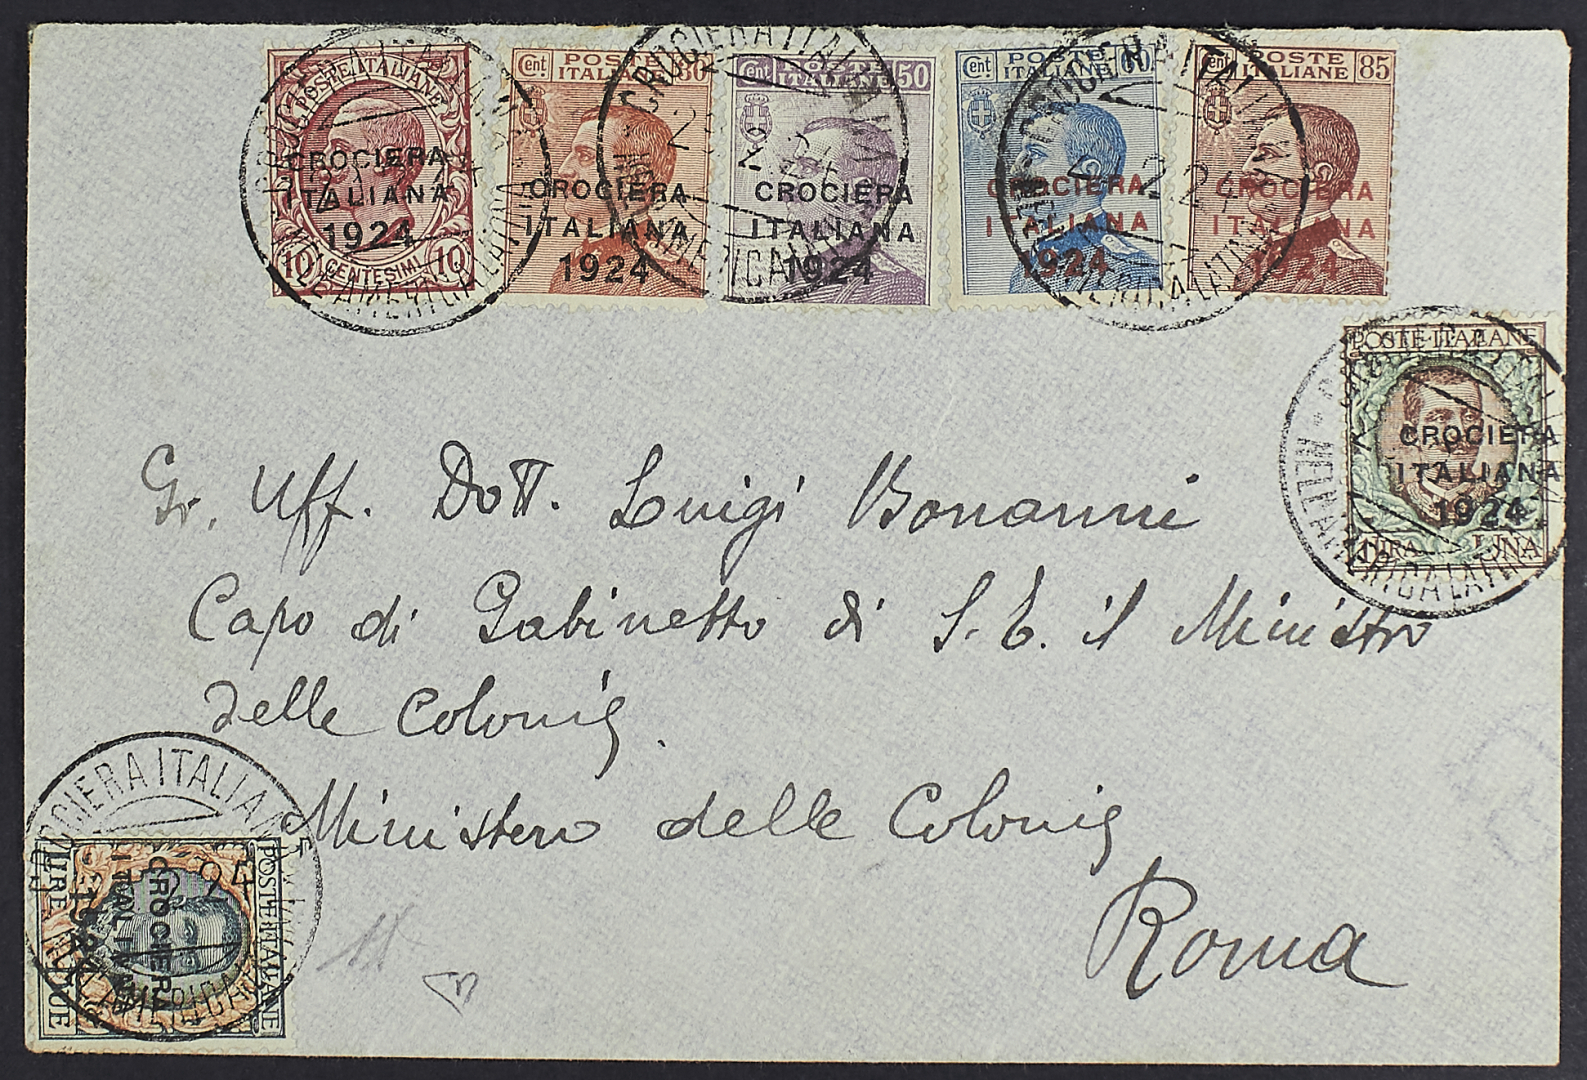 POSTE ITALIANE
CROCIERA
ITALIANA
1924
10 CENTESIMI 10
Cent. POSTE ITALIANE 30
CROCIERA
ITALIANA
1924
Cent. POSTE ITALIANE 50
CROCIERA
ITALIANA
1924
Cent. POSTE ITALIANE 60
CROCIERA
ITALIANA
1924
Cent. POSTE ITALIANE 85
CROCIERA
ITALIANA
1924
CROCIERA ITALIANA
NELL'AMERICA LATINA
POSTE ITALIANE
CROCIERA
ITALIANA
1924
LIRA UNA
Gr. Uff. Dott. Luigi Bonanni
Capo di Gabinetto di S. E. il Ministro
delle Colonie.
Ministero delle Colonie
Roma
CROCIERA ITALIANA
NELL'AMERICA
POSTE ITALIANE
CROCIERA
ITALIANA
1924
LIRE DUE